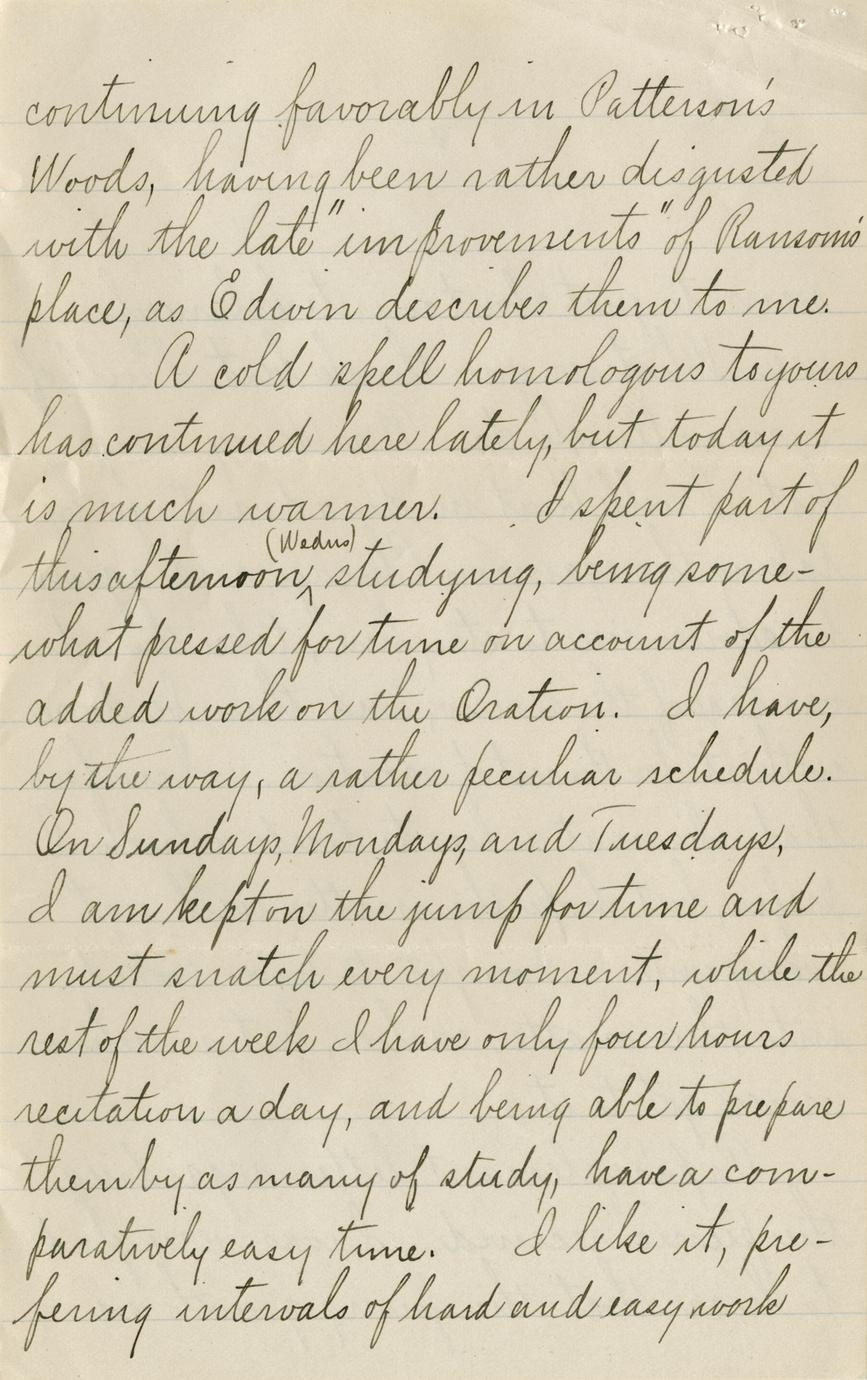 continuing favorably in Patterson's
Woods, having been rather disgusted
with the late "improvements" of Ransom's
place, as Edwin describes them to me.
A cold spell homologous to yours
has continued here lately, but today it
is much warmer. I spent part of
(Wedns)
this afternoon, studying, being some-
what pressed for time on account of the
added work on the Oration. I have,
by the way, a rather peculiar schedule.
On Sundays, Mondays, and Tuesdays,
I am kept on the jump for time and
must snatch every moment, while the
rest of the week I have only four hours
recitation a day, and being able to prepare
them by as many of study, have a com-
paratively easy time. I like it, pre-
fering intervals of hard and easy work